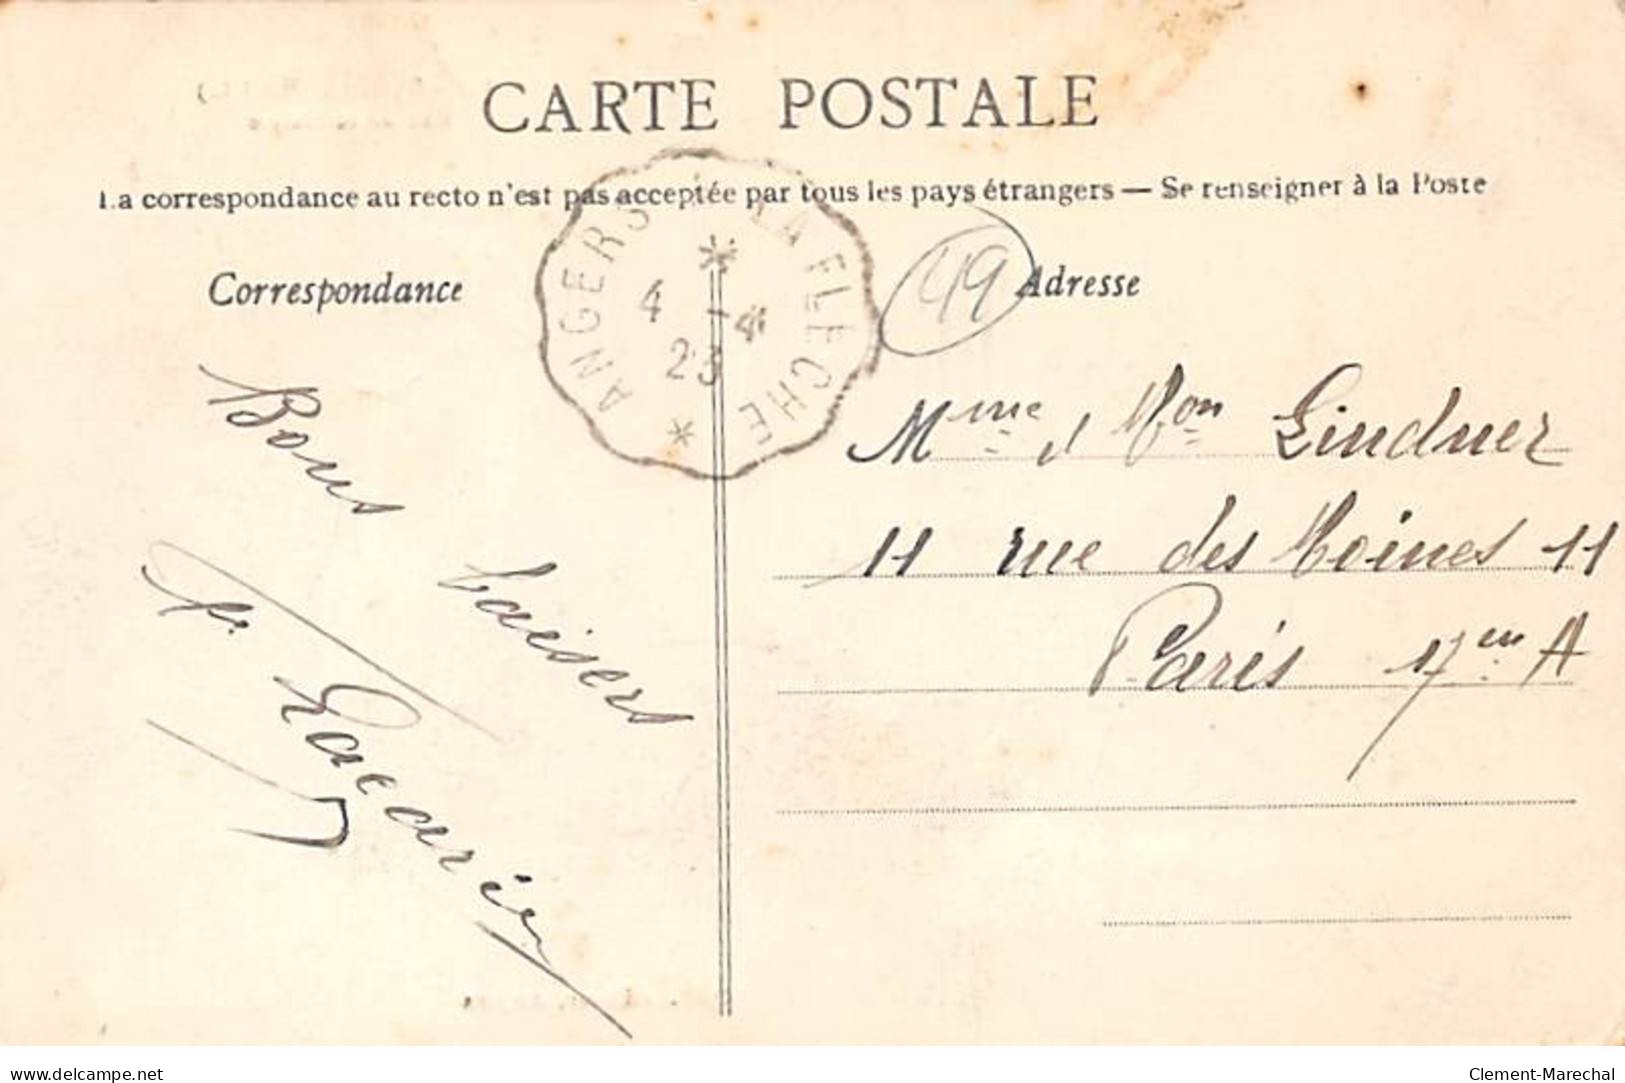 CARTE POSTALE
La correspondance au recto n'est pas acceptée par tous les pays étrangers — Se renseigner à la Poste
Correspondance
Adresse
ANGERS * LA FLECHE *
4 - 4
23
49
Bons
baisers
Mme & Mon Lindner
11 rue des Moines 11
Paris 17em A
www.delcampe.net
Clement-Marechal